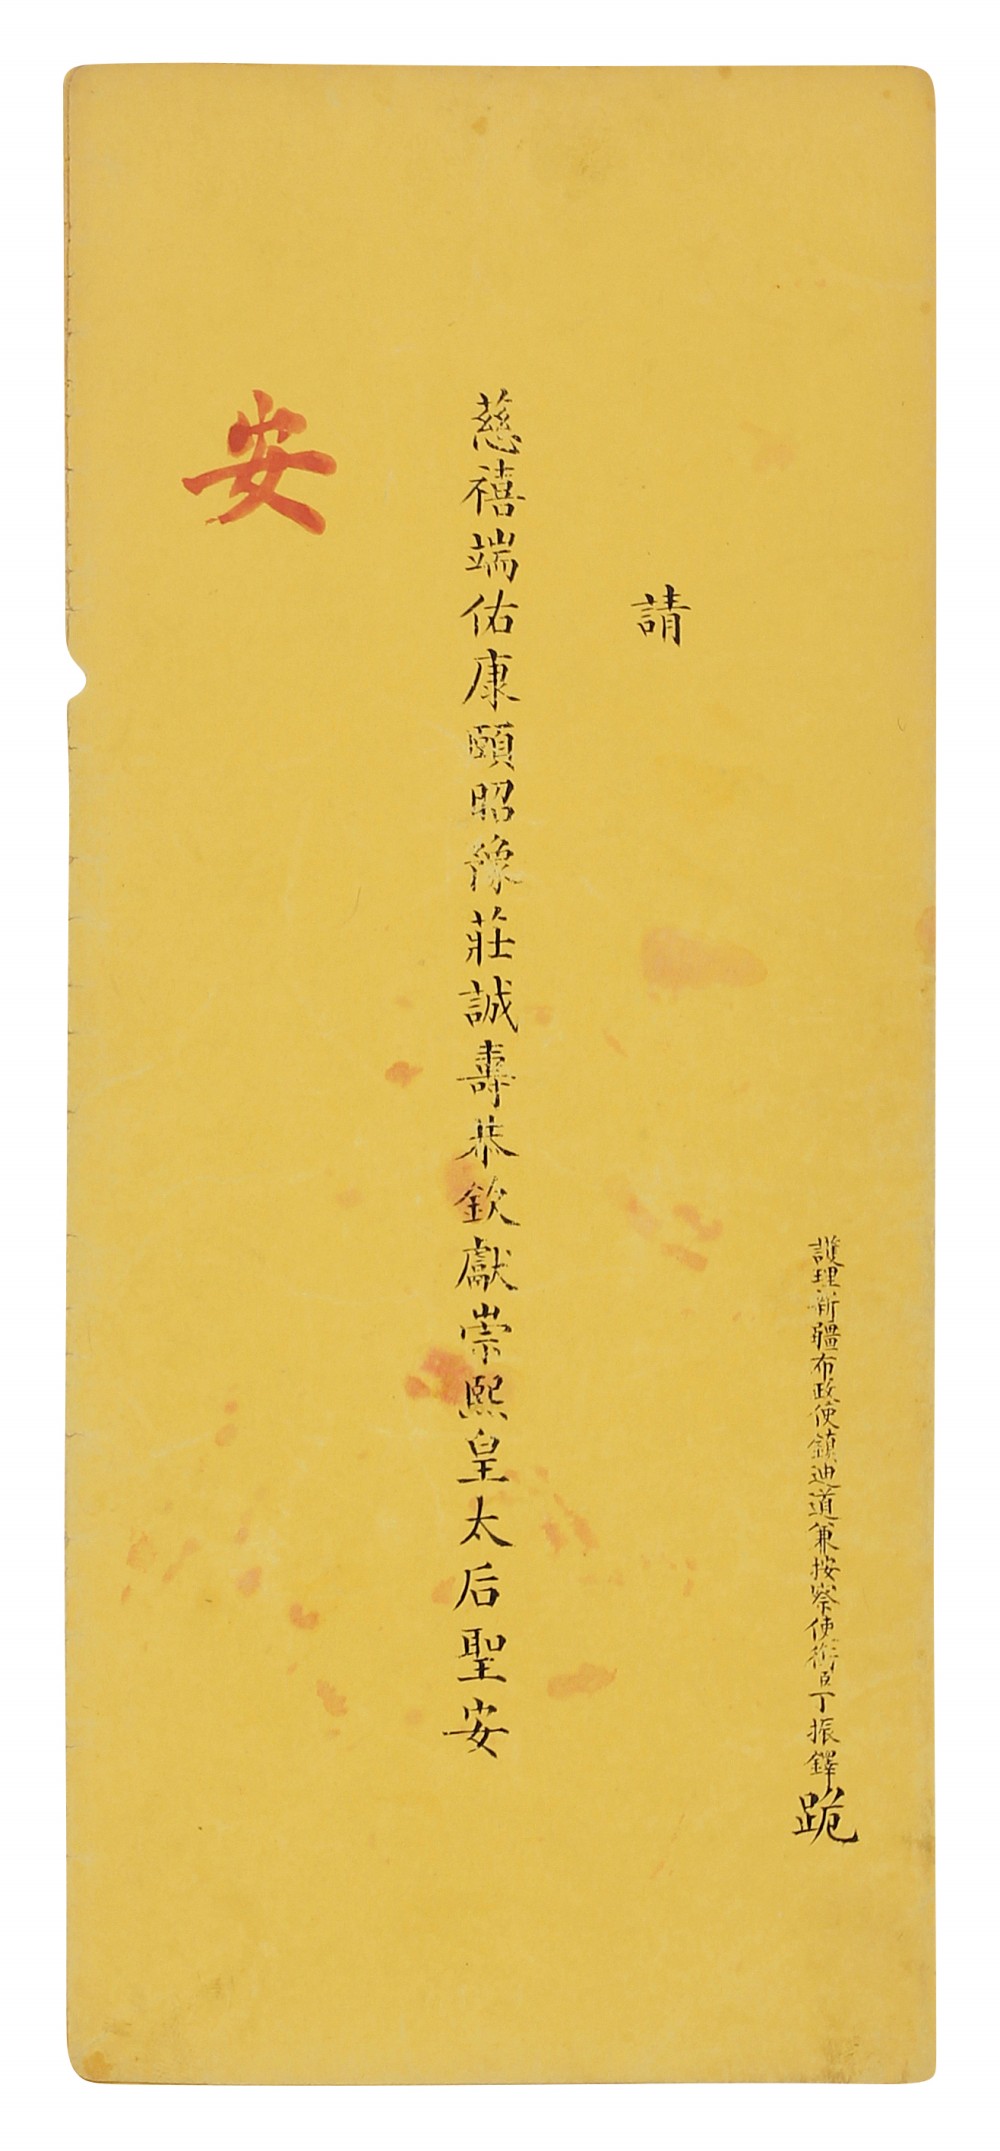 護理新疆布政使鎮迪道兼按察使銜臣丁振鐸跪
請
慈禧端佑康頤昭豫莊誠壽恭欽獻崇熙皇太后聖安
安